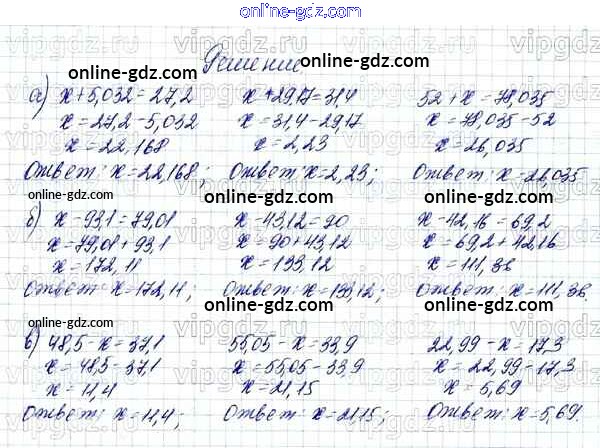 online-gdz.com
Решение.
online-gdz.com
online-gdz.com
а) x+5,032=27,2 x+29,17=31,4 52+x=78,035
x=27,2-5,032 x=31,4-29,17 x=78,035-52
x=22,168 x=2,23 x=26,035
Ответ: x=22,168; Ответ: x=2,23; Ответ: x=26,035
online-gdz.com online-gdz.com online-gdz.com
б) x-93,1=79,01 x-43,12=90 x-42,16=69,2
x=79,01+93,1 x=90+43,12 x=69,2+42,16
x=172,11 x=133,12 x=111,36
Ответ: x=172,11; Ответ: x=133,12; Ответ: x=111,36.
online-gdz.com online-gdz.com online-gdz.com
в) 48,5-x=37,1 55,05-x=33,9 22,99-x=17,3
x=48,5-37,1 x=55,05-33,9 x=22,99-17,3
x=11,4 x=21,15 x=5,69
Ответ: x=11,4; Ответ: x=21,15; Ответ: x=5,69.